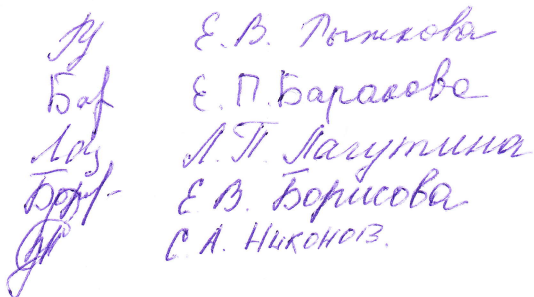 Е. В. Рыжкова
Бар Е. П. Баракова
Лаг Л. П. Лагутина
Бор Е. В. Борисова
С. А. Никонов.